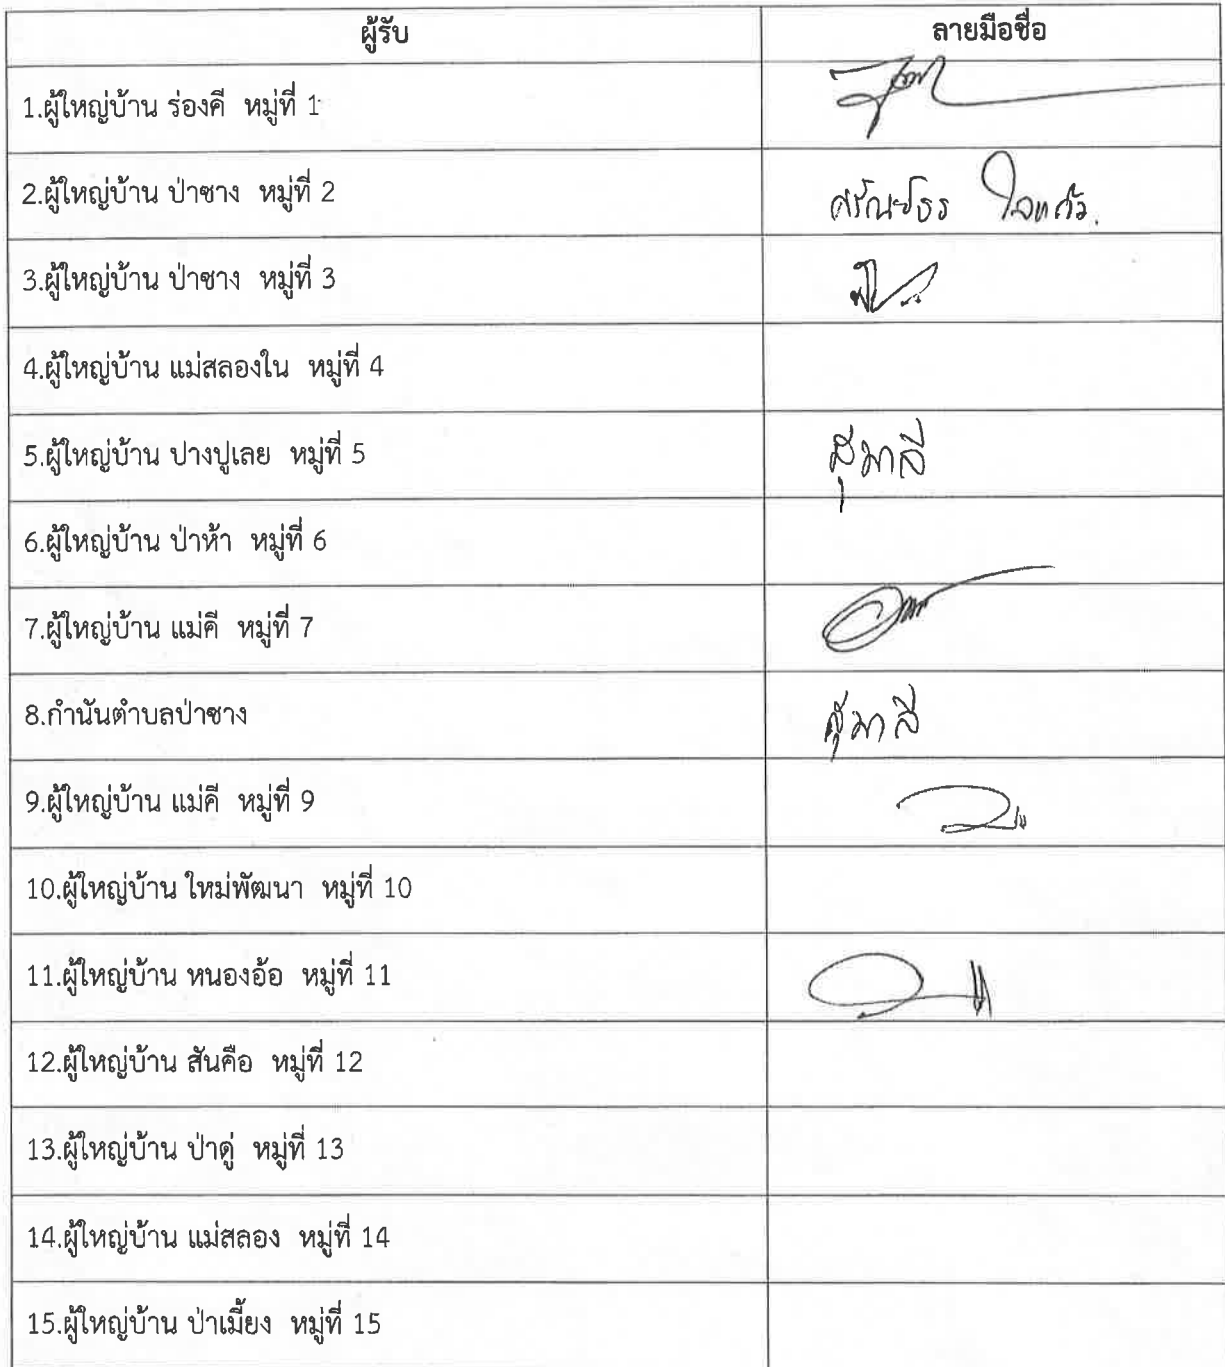 ผู้รับ ลายมือชื่อ
1.ผู้ใหญ่บ้าน ร่องคี หมู่ที่ 1
2.ผู้ใหญ่บ้าน ป่าซาง หมู่ที่ 2 ศรัณย์ธร ใจแก้ว.
3.ผู้ใหญ่บ้าน ป่าซาง หมู่ที่ 3
4.ผู้ใหญ่บ้าน แม่สลองใน หมู่ที่ 4
5.ผู้ใหญ่บ้าน ปางปูเลย หมู่ที่ 5 สุมาลี
6.ผู้ใหญ่บ้าน ป่าห้า หมู่ที่ 6
7.ผู้ใหญ่บ้าน แม่คี หมู่ที่ 7
8.กำนันตำบลป่าซาง สุมาลี
9.ผู้ใหญ่บ้าน แม่คี หมู่ที่ 9
10.ผู้ใหญ่บ้าน ใหม่พัฒนา หมู่ที่ 10
11.ผู้ใหญ่บ้าน หนองอ้อ หมู่ที่ 11
12.ผู้ใหญ่บ้าน สันคือ หมู่ที่ 12
13.ผู้ใหญ่บ้าน ป่าดู่ หมู่ที่ 13
14.ผู้ใหญ่บ้าน แม่สลอง หมู่ที่ 14
15.ผู้ใหญ่บ้าน ป่าเมี้ยง หมู่ที่ 15